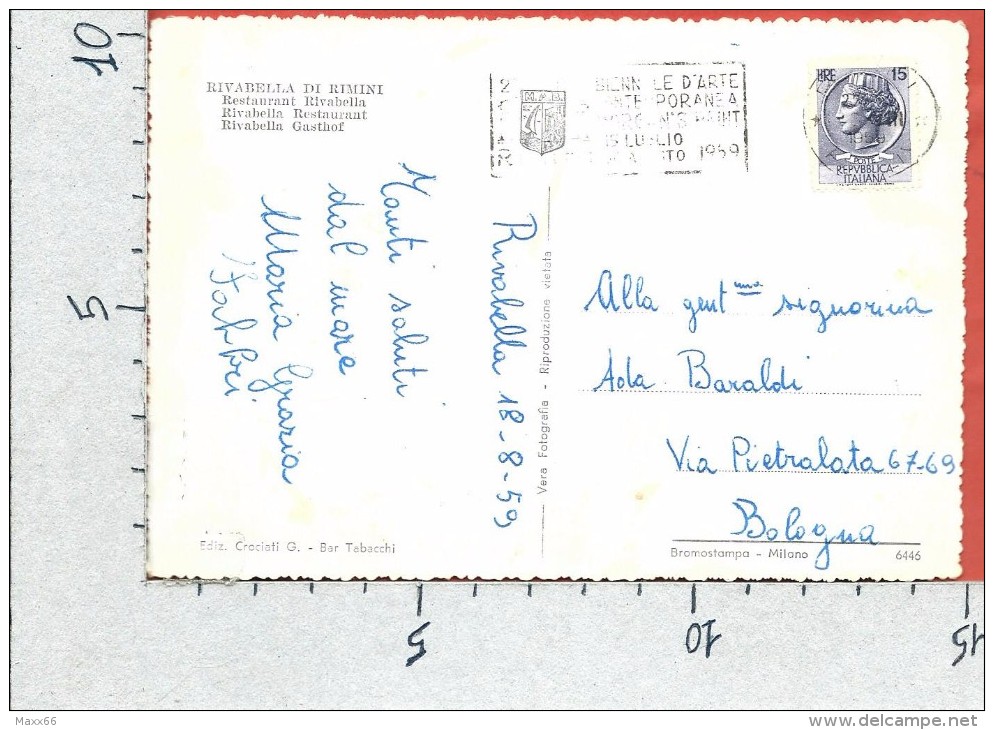 RIVABELLA DI RIMINI
Restaurant Rivabella
Rivabella Restaurant
Rivabella Gasthof
Tanti saluti
dal mare
Maria Grazia
Fabbri
Rivabella 18-8-59
Vera Fotografia - Riproduzione vietata
D'ARTE
LUGLIO
1959
LIRE 15
1959
POSTE
REPVBBLICA
ITALIANA
Alla gent.ma signorina
Ada Baraldi
Via Pietralata 67-69
Bologna
Ediz. Crociati G. - Bar Tabacchi
Bromostampa - Milano 6446
10
5
5
10
15
Maxx66
www.delcampe.net